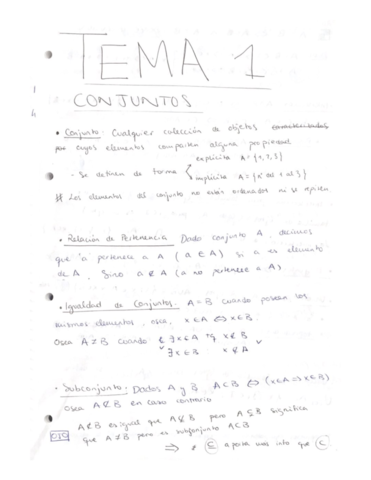 TEMA 1
CONJUNTOS
• Conjunto: Cualquier colección de objetos
por cuyos elementos comparten alguna propiedad
explícita A = {1, 2, 3}
- Se definen de forma
implícita A = {nº del 1 al 3}
Los elementos del conjunto no están ordenados ni se repiten
• Relación de Pertenencia Dado conjunto A decimos
que 'a pertenece a A (a ∈ A) si a es elemento
de A, Sino a ∉ A (a no pertenece a A)
• Igualdad de Conjuntos. A = B cuando posean los
mismos elementos, osea, x ∈ A ⇔ x ∈ B.
Osea A ≠ B cuando ∃ x ∈ A tq x ∉ B
∃ x ∈ B x ∉ A
• Subconjunto: Dados A y B, A ⊂ B ⇔ (x ∈ A ⇒ x ∈ B)
osea A ⊄ B en caso contrario
OJO
A ⊄ B es igual que A ⊈ B pero A ⊊ B significa
que A ≠ B pero es subconjunto A ⊂ B
⇒ ⊆ aporta más info que ⊂